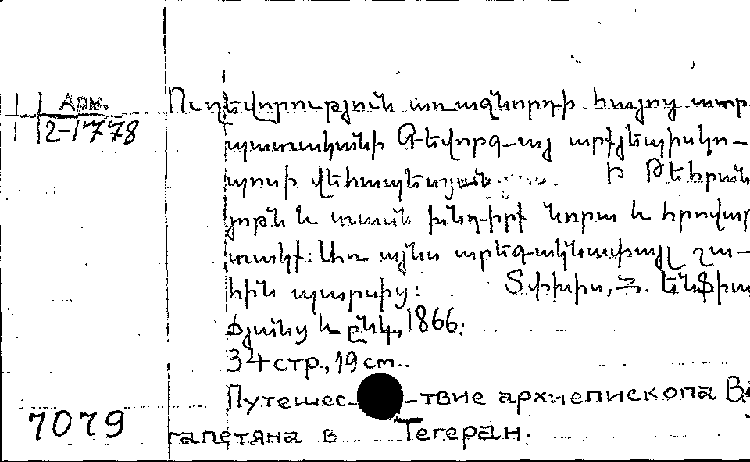 Арм.
12-1778
Ուղեվորություն առաջնորդի հայոց ատր
պատականի Գեվորգ-այ արքեպիսկո-
պոսի վեհապետյան Ի Թեհրան
յորն և առան խնդիրք նորա և հրովար
տակք: Առ այնս արեգակնափայլ շա-
հին պարսից: Տփխիս, Հ. Ենֆիա
ճյանց և ընկ., 1866.
34 стр., 19 см.
Путешес-твие архиепископа Ва
гапетяна в Тегеран.
7079